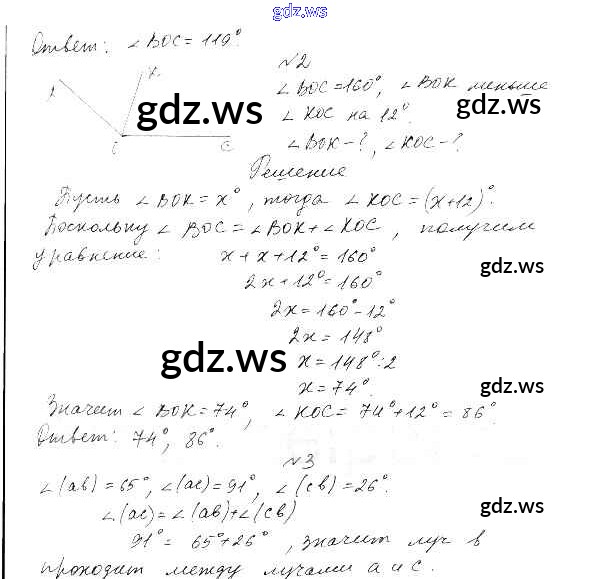 gdz.ws
Ответ: ∠BOC = 119°.
№2
∠BOC = 160°, ∠BOK меньше
∠KOC на 12°.
∠BOK - ?, ∠KOC - ?
gdz.ws
gdz.ws
K
O
C
Решение
Пусть ∠BOK = x°, тогда ∠KOC = (x+12)°.
Поскольку ∠BOC = ∠BOK + ∠KOC, получим
уравнение: x + x + 12° = 160°
2x + 12° = 160°
gdz.ws
2x = 160° - 12°
2x = 148°
gdz.ws
x = 148° : 2
x = 74°.
gdz.ws
Значит ∠BOK = 74°, ∠KOC = 74° + 12° = 86°
Ответ: 74°, 86°.
№3
∠(ab) = 65°, ∠(ac) = 91°, ∠(cb) = 26°.
∠(ac) = ∠(ab) + ∠(cb)
gdz.ws
91° = 65° + 26°, значит луч b
проходит между лучами a и c.